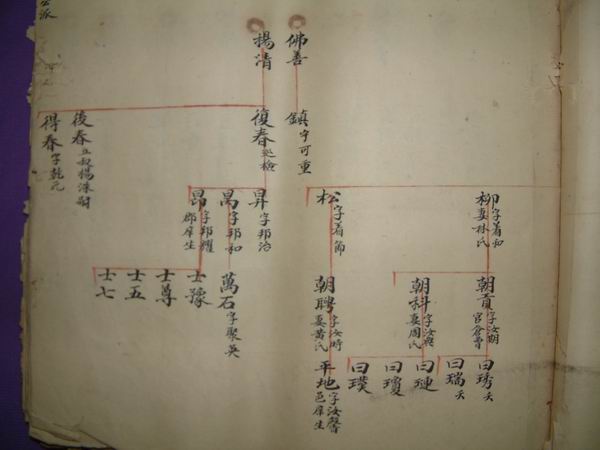 佛善
楊清
鎮字可重
復春巡檢
後春立叔楊洙嗣
得春字乾元
柳字着和妻林氏
松字着節
昇字邦治
昺字邦和
昂字邦耀郡庠生
朝貢字汝朝官倉曹
朝科字汝興妻周氏
朝聘字汝時妻黃氏
萬石字聚英
士豫
士尊
士五
士七
曰琇夭
曰瑞夭
曰璉
曰瓊
曰璞
平地字汝馨邑庠生